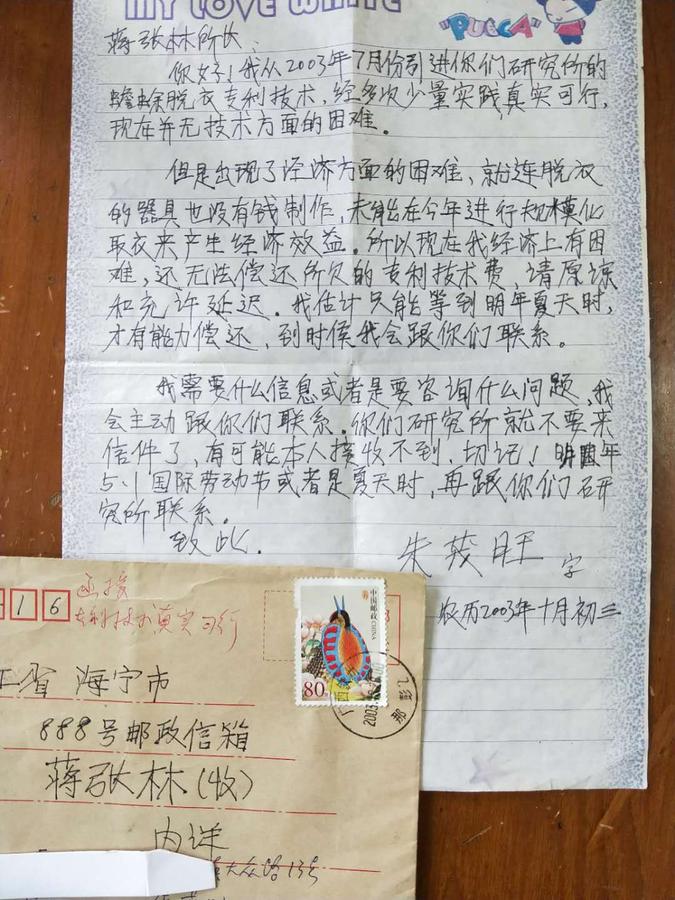 MY LOVE WHITE
"PUCCA"
蒋张林所长、
你好！我从2003年7月份引进你们研究所的
蟾蜍脱衣专利技术，经多次少量实践，真实可行，
现在并无技术方面的困难。
但是出现了经济方面的困难、就连脱衣
的器具也没有钱制作，未能在今年进行规模化
取衣来产生经济效益。所以现在我经济上有困
难，还无法偿还所欠的专利技术费，请原谅
和允许延迟。我估计只能等到明年夏天时，
才有能力偿还，到时候我会跟你们联系。
我需要什么信息或者是要咨询什么问题、我
会主动跟你们联系。你们研究所就不要来
信件了，有可能本人接收不到、切记！明年
5.1国际劳动节或者是夏天时，再跟你们研
究所联系。
致此、
朱茂旺 字
农历2003年十月初三
16
专利技术真实可行
中国邮政 CHINA
80
广西
2003
那彭
江省 海宁市
888号邮政信箱
蒋张林(收)
内详
大众路13号